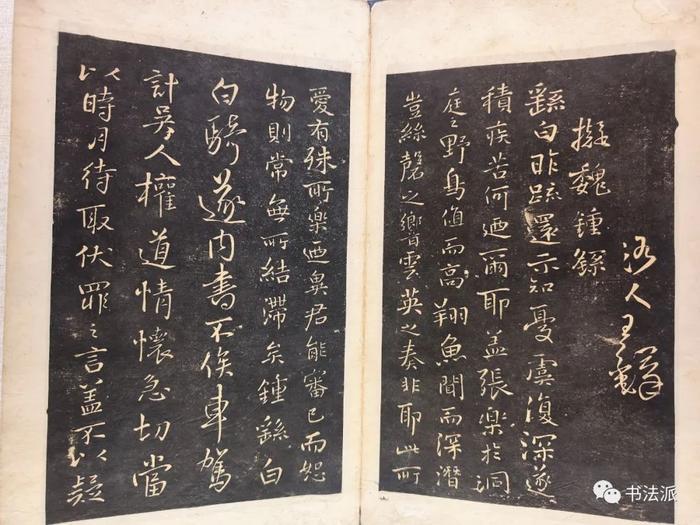 洛人王鐸
擬魏鍾繇
繇白昨疏還示知憂虞復深遂
積疾苦何迺爾耶蓋張樂於洞
庭之野鳥值而高翔魚聞而深潛
豈絲磬之響雲英之奏非耶此所
愛有殊所樂迺異君能審己而恕
物則常無所結滯矣鍾繇白
白騎遂內書不俟車駕
計吳人權道情懷急切當
以時月待取伏罪之言蓋不以疑
书法派